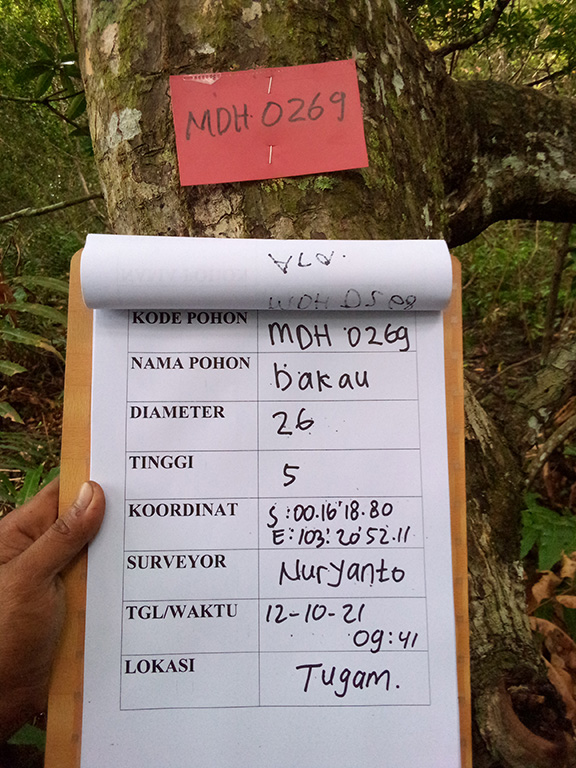 MDH 0269
KODE POHON MDH 0269
NAMA POHON bakau
DIAMETER 26
TINGGI 5
KOORDINAT S:00.16'18.80
E:103:20'52.11
SURVEYOR Nuryanto
TGL/WAKTU 12-10-21
09:41
LOKASI Tugam.